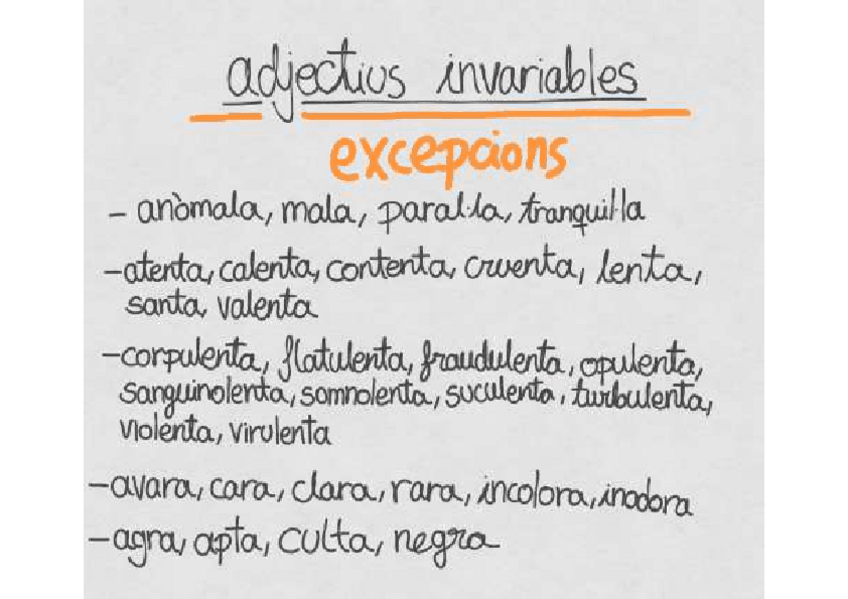 adjectius invariables
excepcions
- anòmala, mala, paral·la, tranquil·la
- atenta, calenta, contenta, cruenta, lenta,
santa, valenta
- corpulenta, flatulenta, fraudulenta, opulenta,
sanguinolenta, somnolenta, suculenta, turbulenta,
violenta, virulenta
- avara, cara, clara, rara, incolora, inodora
- agra, apta, culta, negra